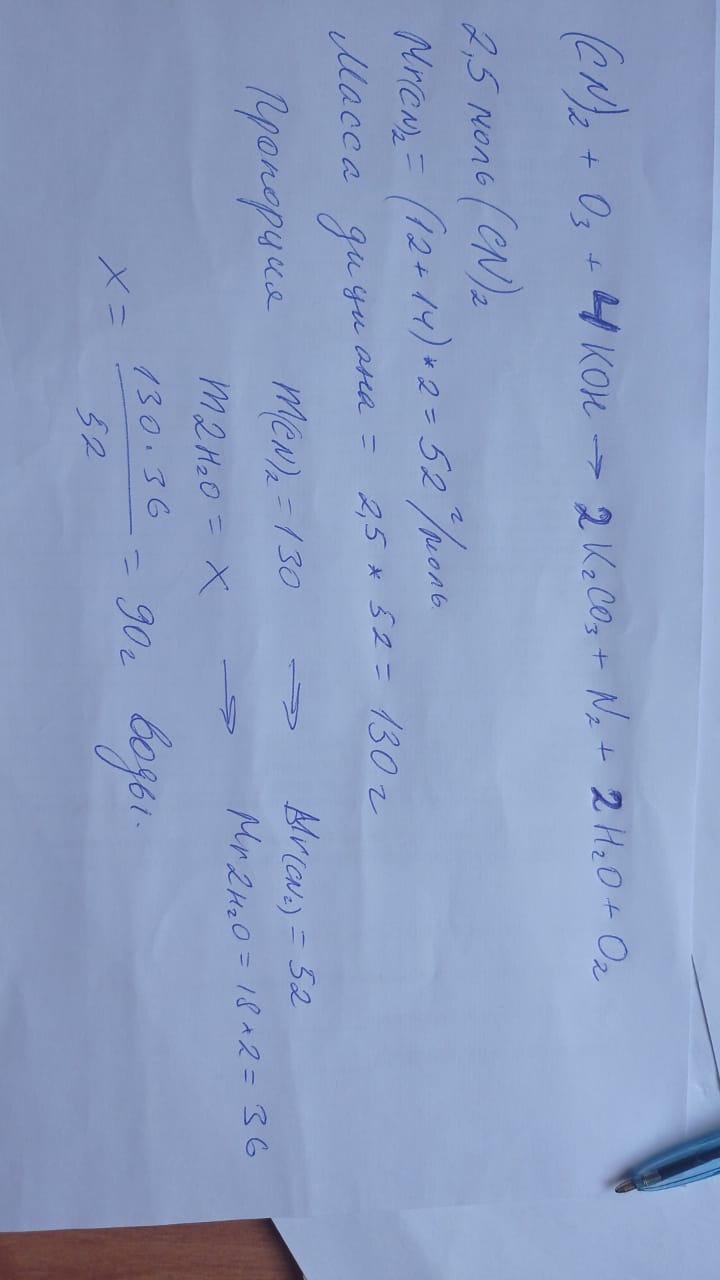 (CN)₂ + O₃ + 4KOH → 2K₂CO₃ + N₂ + 2H₂O + O₂
2,5 моль (CN)₂
Mr(CN₂ = (12+14)*2 = 52 г/моль.
Масса дициана = 2,5 * 52 = 130 г
Пропорция m(CN)₂ = 130 → Mr(CN₂) = 52
m2H₂O = x → Mr2H₂O = 18*2 = 36
x = 130·36 / 52 = 90 г воды.